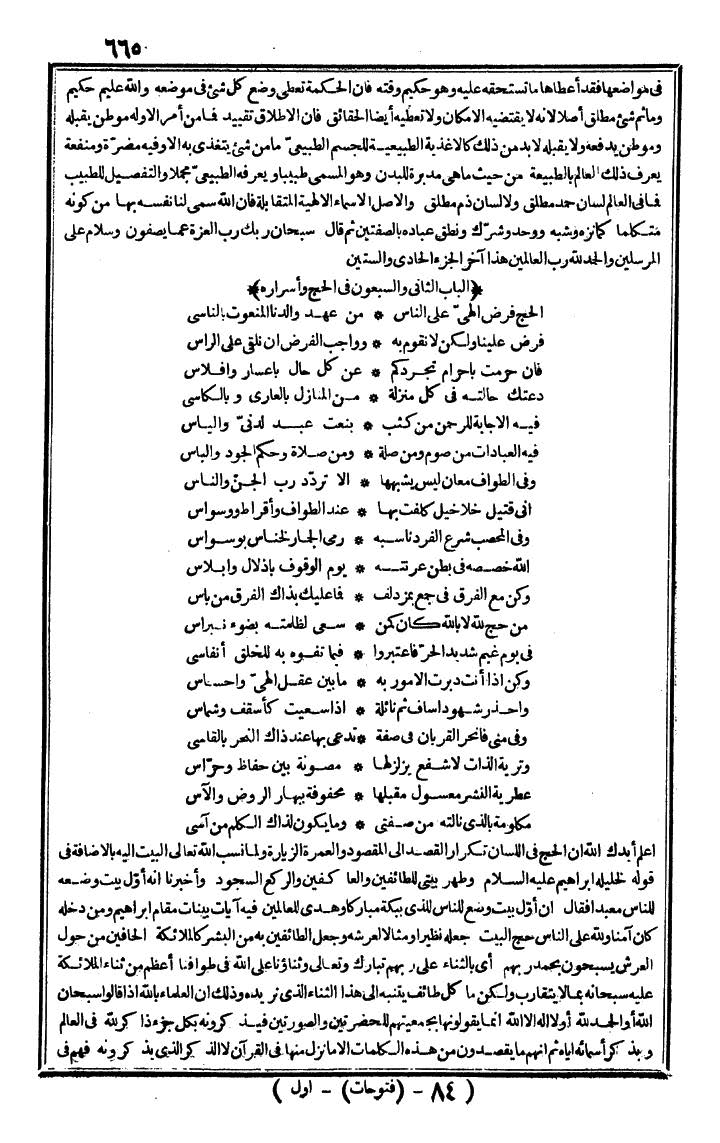 ٦٦٥
فى مواضعها فقد أعطاها ما تستحقه عليه وهو حكيم وقته فان الحكمة تعطى وضع كل شئ فى موضعه والله عليم حكيم
وما ثم شئ مطلق أصلا لانه لا يقتضيه الامكان ولا تعطيه أيضا الحقائق فان الاطلاق تقييد فما من أمر الا وله موطن يقبله
وموطن يدفعه ولا يقبله لابد من ذلك كالاغذية الطبيعية للجسم الطبيعىّ ما من شئ يتغذى به الا وفيه مضرّة ومنفعة
يعرف ذلك العالم بالطبيعة من حيث ما هى مدبرة للبدن وهو المسمى طبيبا ويعرفه الطبيعىّ مجملا والتفصيل للطبيب
فما فى العالم لسان حمد مطلق ولا لسان ذم مطلق والاصل الاسماء الالهية المتقابلة فان الله سمى لنا نفسه بها من كونه
متكلما كما نزه وشبه ووحد وشرّك ونطق عباده بالصفتين ثم قال سبحان ربك رب العزة عما يصفون وسلام على
المرسلين والحمد لله رب العالمين هذا آخر الجزء الحادى والستين
﴿الباب الثانى والسبعون فى الحج وأسراره﴾
الحج فرض الهىّ على الناس * من عهد والدنا المنعوت بالناسى
فرض علينا ولكن لا نقوم به * وواجب الفرض ان نلقى على الراس
فان حرمت باحرام تجردكم * عن كل حال باعسار وافلاس
دعتك حالته فى كل منزلة * من المنازل بالعارى وبالكاسى
فيه الاجابة للرحمن من كثب * بنعت عبد لدنىّ والياس
فيه العبادات من صوم ومن صلة * ومن صلاة وحكم الجود والباس
وفى الطواف معان ليس يشبهها * الا تردّد رب الجنّ والناس
انى قتيل خلاخيل كلفت بها * عند الطواف وأقراط ووسواس
وفى المحصب شرع الفرد ناسبه * رمى الجمار لخناس بوسواس
الله خصصه فى بطن عرنته * يوم الوقوف باذلال وابلاس
وكن مع الفرق فى جمع بمزدلف * فما عليك بذاك الفرق من باس
من حج لله لا بالله كان كمن * سعى لظلمته بضوء نبراس
فى يوم غيم شديد الحرّ فاعتبروا * فيما تفوه به للخلق أنفاسى
وكن اذا أنت دبرت الامور به * ما بين عقل الهىّ واحساس
واحذر شهود اساف ثم نائلة * اذا سعيت كأسقف وشماس
وفى منى فانحر القربان فى صفة * تدعى بها عند ذاك النحر بالقاسى
وتربة الذات لا شفع يزلزلها * مصونة بين حفاظ وحرّاس
عطرية النشر معسول مقبلها * محفوفة ببهار الروض والآس
مكلومة بالذى نالته من صفتى * وما يكون لذاك الكلم من آسى
اعلم أيدك الله ان الحج فى اللسان تكرار القصد الى المقصود والعمرة الزيارة ولما نسب الله تعالى البيت اليه بالاضافة فى
قوله لخليله ابراهيم عليه السلام وطهر بيتى للطائفين والعاكفين والركع السجود وأخبرنا انه أوّل بيت وضعه
للناس معبدا فقال ان أوّل بيت وضع للناس للذى ببكة مباركا وهدى للعالمين فيه آيات بينات مقام ابراهيم ومن دخله
كان آمنا ولله على الناس حج البيت جعله نظيرا ومثالا لعرشه وجعل الطائفين به من البشر كالملائكة الحافين من حول
العرش يسبحون بحمد ربهم أى بالثناء على ربهم تبارك وتعالى وثناؤنا على الله فى طوافنا أعظم من ثناء الملائكة
عليه سبحانه بما لا يتقارب ولكن ما كل طائف يتنبه الى هذا الثناء الذى نريده وذلك ان العلماء بالله اذا قالوا سبحان
الله أو الحمد لله أو لا اله الا الله انما يقولونها بجمعيتهم للحضرتين والصورتين فيذكرونه بكل جزء ذاكر لله فى العالم
وبذكر أسمائه اياه ثم انهم ما يقصدون من هذه الكلمات الا ما نزل منها فى القرآن لا الذكر الذى يذكرونه فهم فى
( ٨٤ - (فتوحات) - اول )